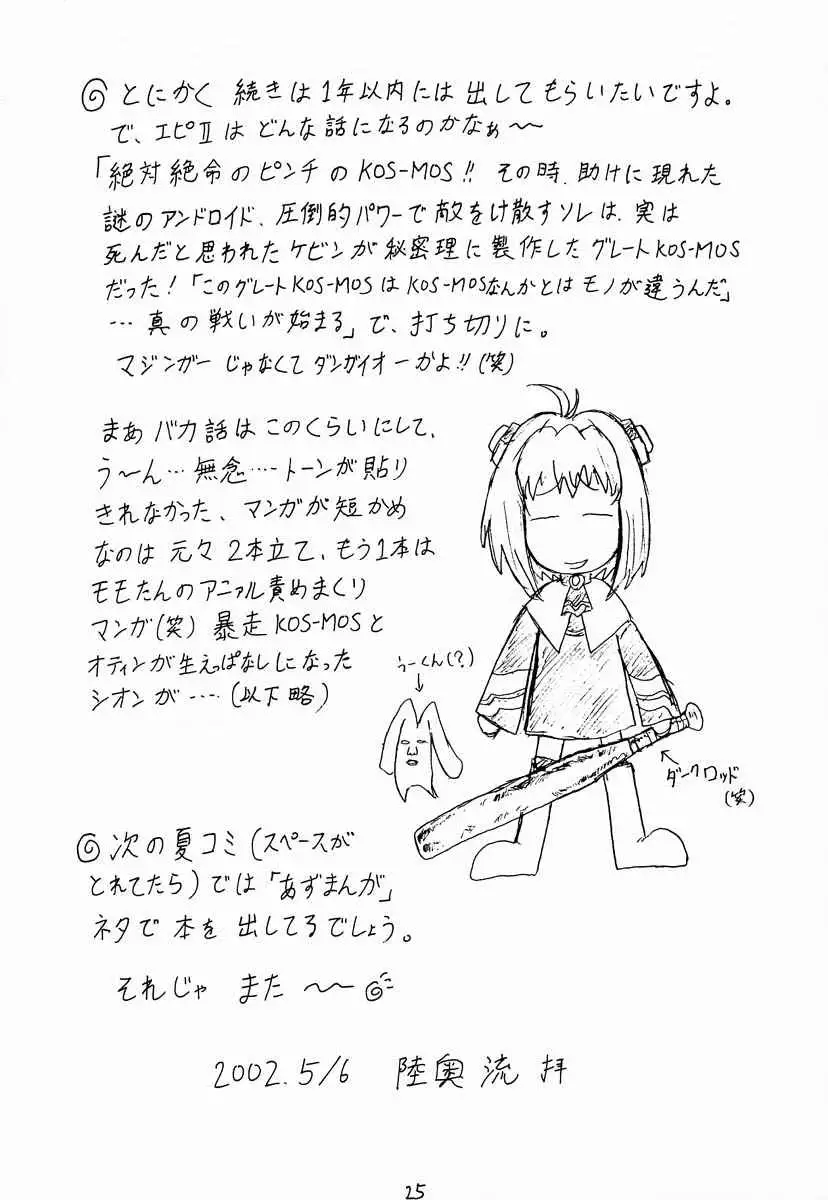 とにかく 続きは1年以内には出してもらいたいですよ。
で、エピⅡはどんな話になるのかなぁ〜〜
「絶対絶命のピンチのKOS-MOS!! その時、助けに現れた
謎のアンドロイド、圧倒的パワーで敵をけ散すソレは、実は
死んだと思われたケビンが秘密理に製作したグレートKOS-MOS
だった!「このグレートKOS-MOSはKOS-MOSなんかとはモノが違うんだ」
…真の戦いが始まる」で、打ち切りに。
マジンガーじゃなくてダンガイオーかよ!!(笑)
まあバカ話はこのくらいにして、
う〜ん…無念……トーンが貼り
きれなかった、マンガが短かめ
なのは元々2本立て、もう1本は
うーくん(?)
ダークロッド
(笑)
次の夏コミ(スペースが
とれてたら)では「あずまんが」
ネタで本を出してるでしょう。
それじゃ また〜〜
2002.5/6 陸奥 流 拝
25